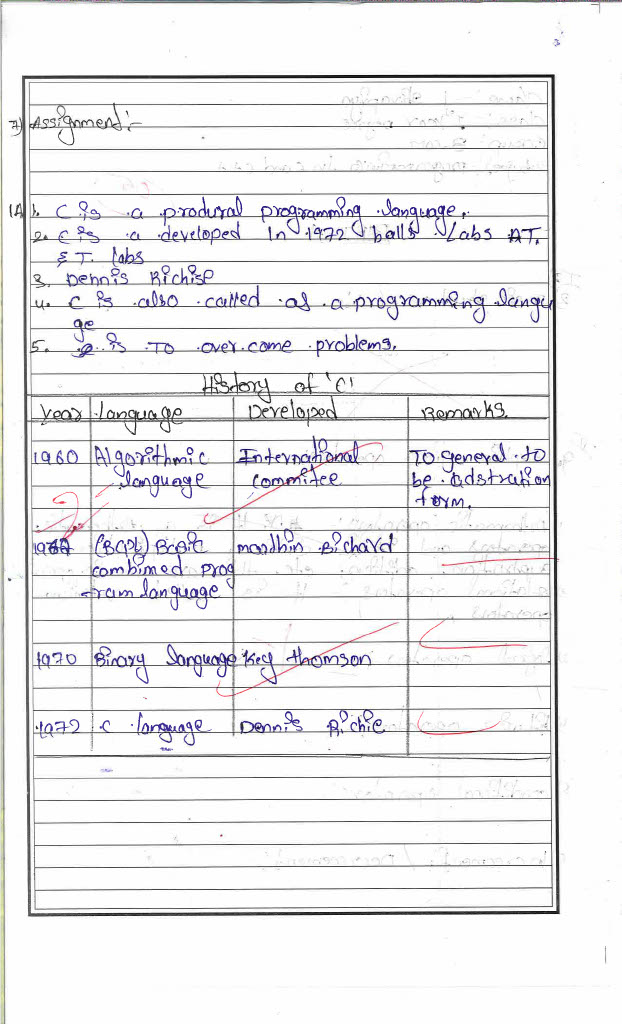 7) Assignment :-
1A) 1. C is a produral programming language.
2. C is a developed In 1972 balls Labs AT.
& T. labs
3. Dennis Richise
4. C is also called as a programming langu
ge
5. is To over come problems.
History of 'C'
Year language Developed Remarks.
1960 Algorithmic International To general to
language commitee be adstration
form.
(BCPL) Basic Richard
combimed prog
ram language
1970 Binary language Key thomson
1972 c language Dennis Richie